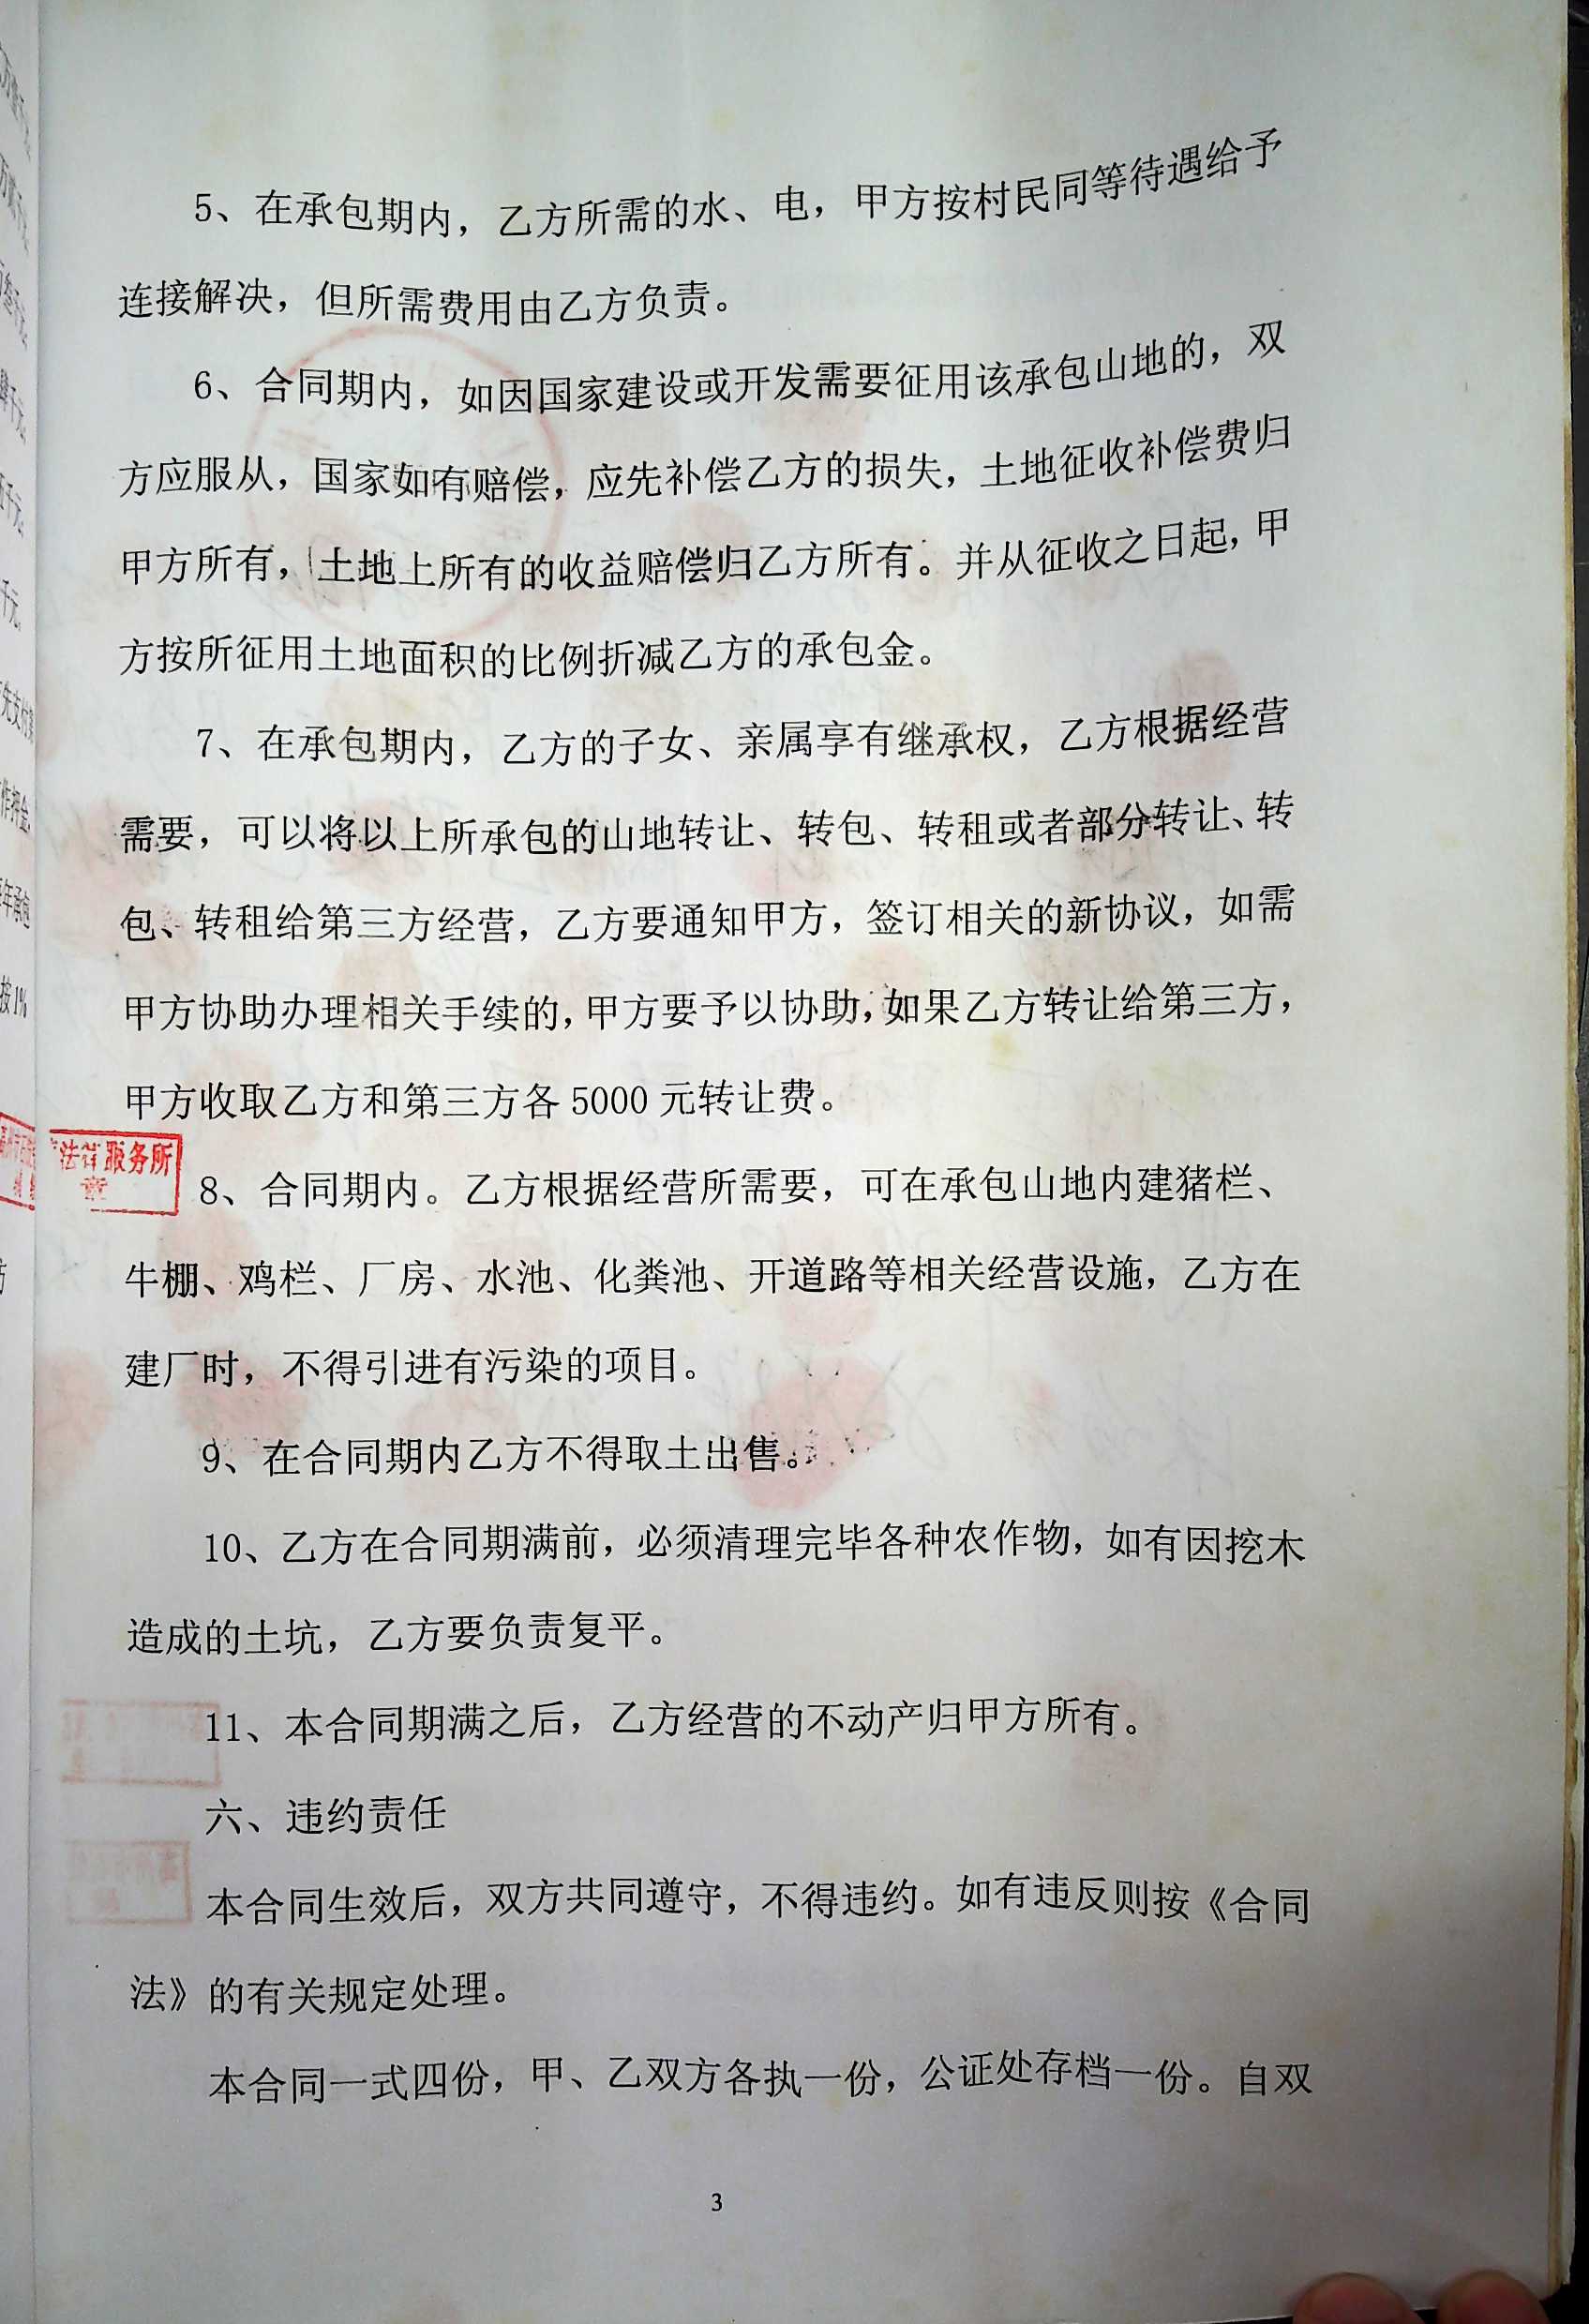 5、在承包期内，乙方所需的水、电，甲方按村民同等待遇给予
连接解决，但所需费用由乙方负责。
6、合同期内，如因国家建设或开发需要征用该承包山地的，双
方应服从，国家如有赔偿，应先补偿乙方的损失，土地征收补偿费归
甲方所有，土地上所有的收益赔偿归乙方所有。并从征收之日起，甲
方按所征用土地面积的比例折减乙方的承包金。
7、在承包期内，乙方的子女、亲属享有继承权，乙方根据经营
需要，可以将以上所承包的山地转让、转包、转租或者部分转让、转
包、转租给第三方经营，乙方要通知甲方，签订相关的新协议，如需
甲方协助办理相关手续的，甲方要予以协助，如果乙方转让给第三方，
甲方收取乙方和第三方各5000元转让费。
法律服务所
章
8、合同期内。乙方根据经营所需要，可在承包山地内建猪栏、
牛棚、鸡栏、厂房、水池、化粪池、开道路等相关经营设施，乙方在
建厂时，不得引进有污染的项目。
9、在合同期内乙方不得取土出售。
10、乙方在合同期满前，必须清理完毕各种农作物，如有因挖木
造成的土坑，乙方要负责复平。
11、本合同期满之后，乙方经营的不动产归甲方所有。
六、违约责任
本合同生效后，双方共同遵守，不得违约。如有违反则按《合同
法》的有关规定处理。
本合同一式四份，甲、乙双方各执一份，公证处存档一份。自双
3